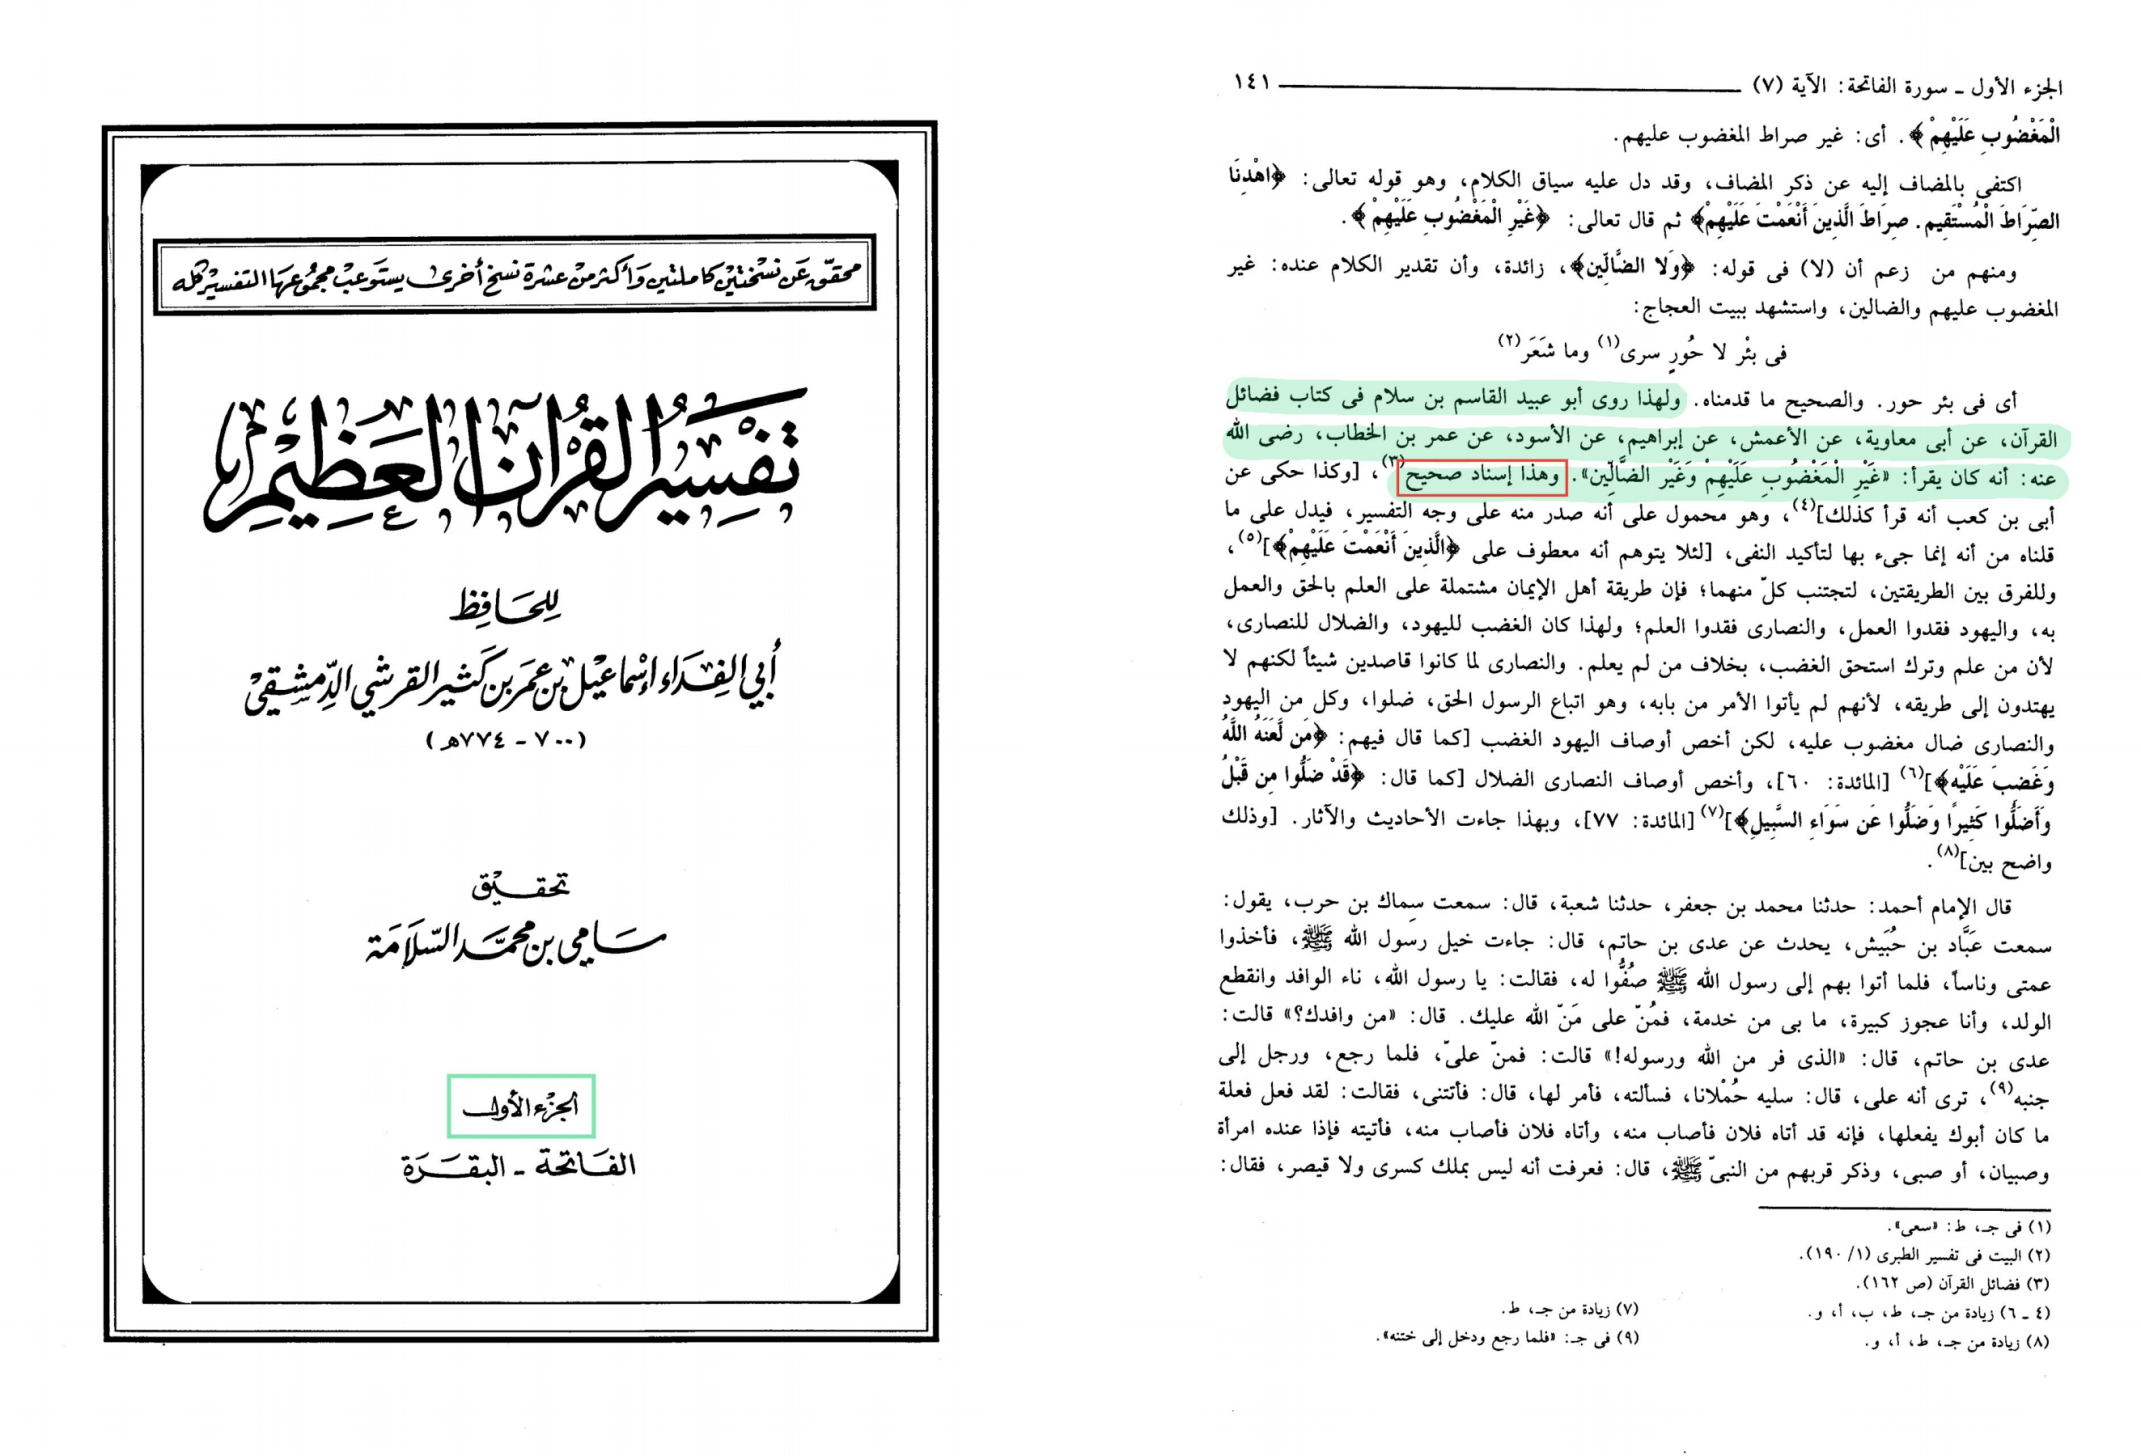 محقق عن نسختين كاملتين وأكثر من عشرة نسخ أخرى يستوعب مجموعها التفسير كله
تفسير القرآن العظيم
للحافظ
أبي الفداء إسماعيل بن عمر بن كثير القرشي الدمشقي
(٧٠٠ - ٧٧٤هـ)
تحقيق
سامي بن محمد السلامة
الجزء الأول
الفاتحة - البقرة
الجزء الأول ـ سورة الفاتحة: الآية (٧) ١٤١
الْمَغْضُوبِ عَلَيْهِمْ﴾. أى: غير صراط المغضوب عليهم.
اكتفى بالمضاف إليه عن ذكر المضاف، وقد دل عليه سياق الكلام، وهو قوله تعالى: ﴿اهْدِنَا
الصِّرَاطَ الْمُسْتَقِيم. صِرَاطَ الَّذِينَ أَنْعَمْتَ عَلَيْهِمْ﴾ ثم قال تعالى: ﴿غَيْرِ الْمَغْضُوبِ عَلَيْهِمْ﴾.
ومنهم من زعم أن (لا) فى قوله: ﴿وَلا الضَّالِّين﴾، زائدة، وأن تقدير الكلام عنده: غير
المغضوب عليهم والضالين، واستشهد ببيت العجاج:
فى بئْر لا حُورٍ سرى(١) وما شَعَر(٢)
أى فى بئر حور. والصحيح ما قدمناه. ولهذا روى أبو عبيد القاسم بن سلام فى كتاب فضائل
القرآن، عن أبى معاوية، عن الأعمش، عن إبراهيم، عن الأسود، عن عمر بن الخطاب، رضى الله
عنه: أنه كان يقرأ: «غَيْرِ الْمَغْضُوبِ عَلَيْهِمْ وَغَيْر الضَّالِّين». وهذا إسناد صحيح(٣)، [وكذا حكى عن
أبى بن كعب أنه قرأ كذلك](٤)، وهو محمول على أنه صدر منه على وجه التفسير، فيدل على ما
قلناه من أنه إنما جىء بها لتأكيد النفى، [لئلا يتوهم أنه معطوف على ﴿الَّذِينَ أَنْعَمْتَ عَلَيْهِمْ﴾](٥)،
وللفرق بين الطريقتين، لتجتنب كلّ منهما؛ فإن طريقة أهل الإيمان مشتملة على العلم بالحق والعمل
به، واليهود فقدوا العمل، والنصارى فقدوا العلم؛ ولهذا كان الغضب لليهود، والضلال للنصارى،
لأن من علم وترك استحق الغضب، بخلاف من لم يعلم. والنصارى لما كانوا قاصدين شيئاً لكنهم لا
يهتدون إلى طريقه، لأنهم لم يأتوا الأمر من بابه، وهو اتباع الرسول الحق، ضلوا، وكل من اليهود
والنصارى ضال مغضوب عليه، لكن أخص أوصاف اليهود الغضب [كما قال فيهم: ﴿مَن لَّعَنَهُ اللَّهُ
وَغَضِبَ عَلَيْهِ﴾](٦) [المائدة: ٦٠]، وأخص أوصاف النصارى الضلال [كما قال: ﴿قَدْ ضَلُّوا مِن قَبْلُ
وَأَضَلُّوا كَثِيراً وَضَلُّوا عَن سَوَاءِ السَّبِيلِ﴾](٧) [المائدة: ٧٧]، وبهذا جاءت الأحاديث والآثار. [وذلك
واضح بين](٨).
قال الإمام أحمد: حدثنا محمد بن جعفر، حدثنا شعبة، قال: سمعت سِماك بن حرب، يقول:
سمعت عَبَّاد بن حُبَيش، يحدث عن عدى بن حاتم، قال: جاءت خيل رسول الله ﷺ، فأخذوا
عمتى وناساً، فلما أتوا بهم إلى رسول الله ﷺ صُفُّوا له، فقالت: يا رسول الله، ناء الوافد وانقطع
الولد، وأنا عجوز كبيرة، ما بى من خدمة، فمُنّ على مَنّ الله عليك. قال: «من وافدك؟» قالت:
عدى بن حاتم، قال: «الذى فر من الله ورسوله!» قالت: فمنّ علىّ، فلما رجع، ورجل إلى
جنبه(٩)، ترى أنه على، قال: سليه حُمْلانا، فسألته، فأمر لها، قال: فأتتنى، فقالت: لقد فعل فعلة
ما كان أبوك يفعلها، فإنه قد أتاه فلان فأصاب منه، وأتاه فلان فأصاب منه، فأتيته فإذا عنده امرأة
وصبيان، أو صبى، وذكر قربهم من النبىّ ﷺ، قال: فعرفت أنه ليس بملك كسرى ولا قيصر، فقال:
(١) فى جـ، ط: «سعى».
(٢) البيت فى تفسير الطبرى (١/ ١٩٠).
(٣) فضائل القرآن (ص ١٦٢).
(٤ ـ ٦) زيادة من جـ، ط، ب، أ، و.
(٧) زيادة من جـ، ط.
(٨) زيادة من جـ، ط، أ، و.
(٩) فى جـ: «فلما رجع ودخل إلى ختنه».